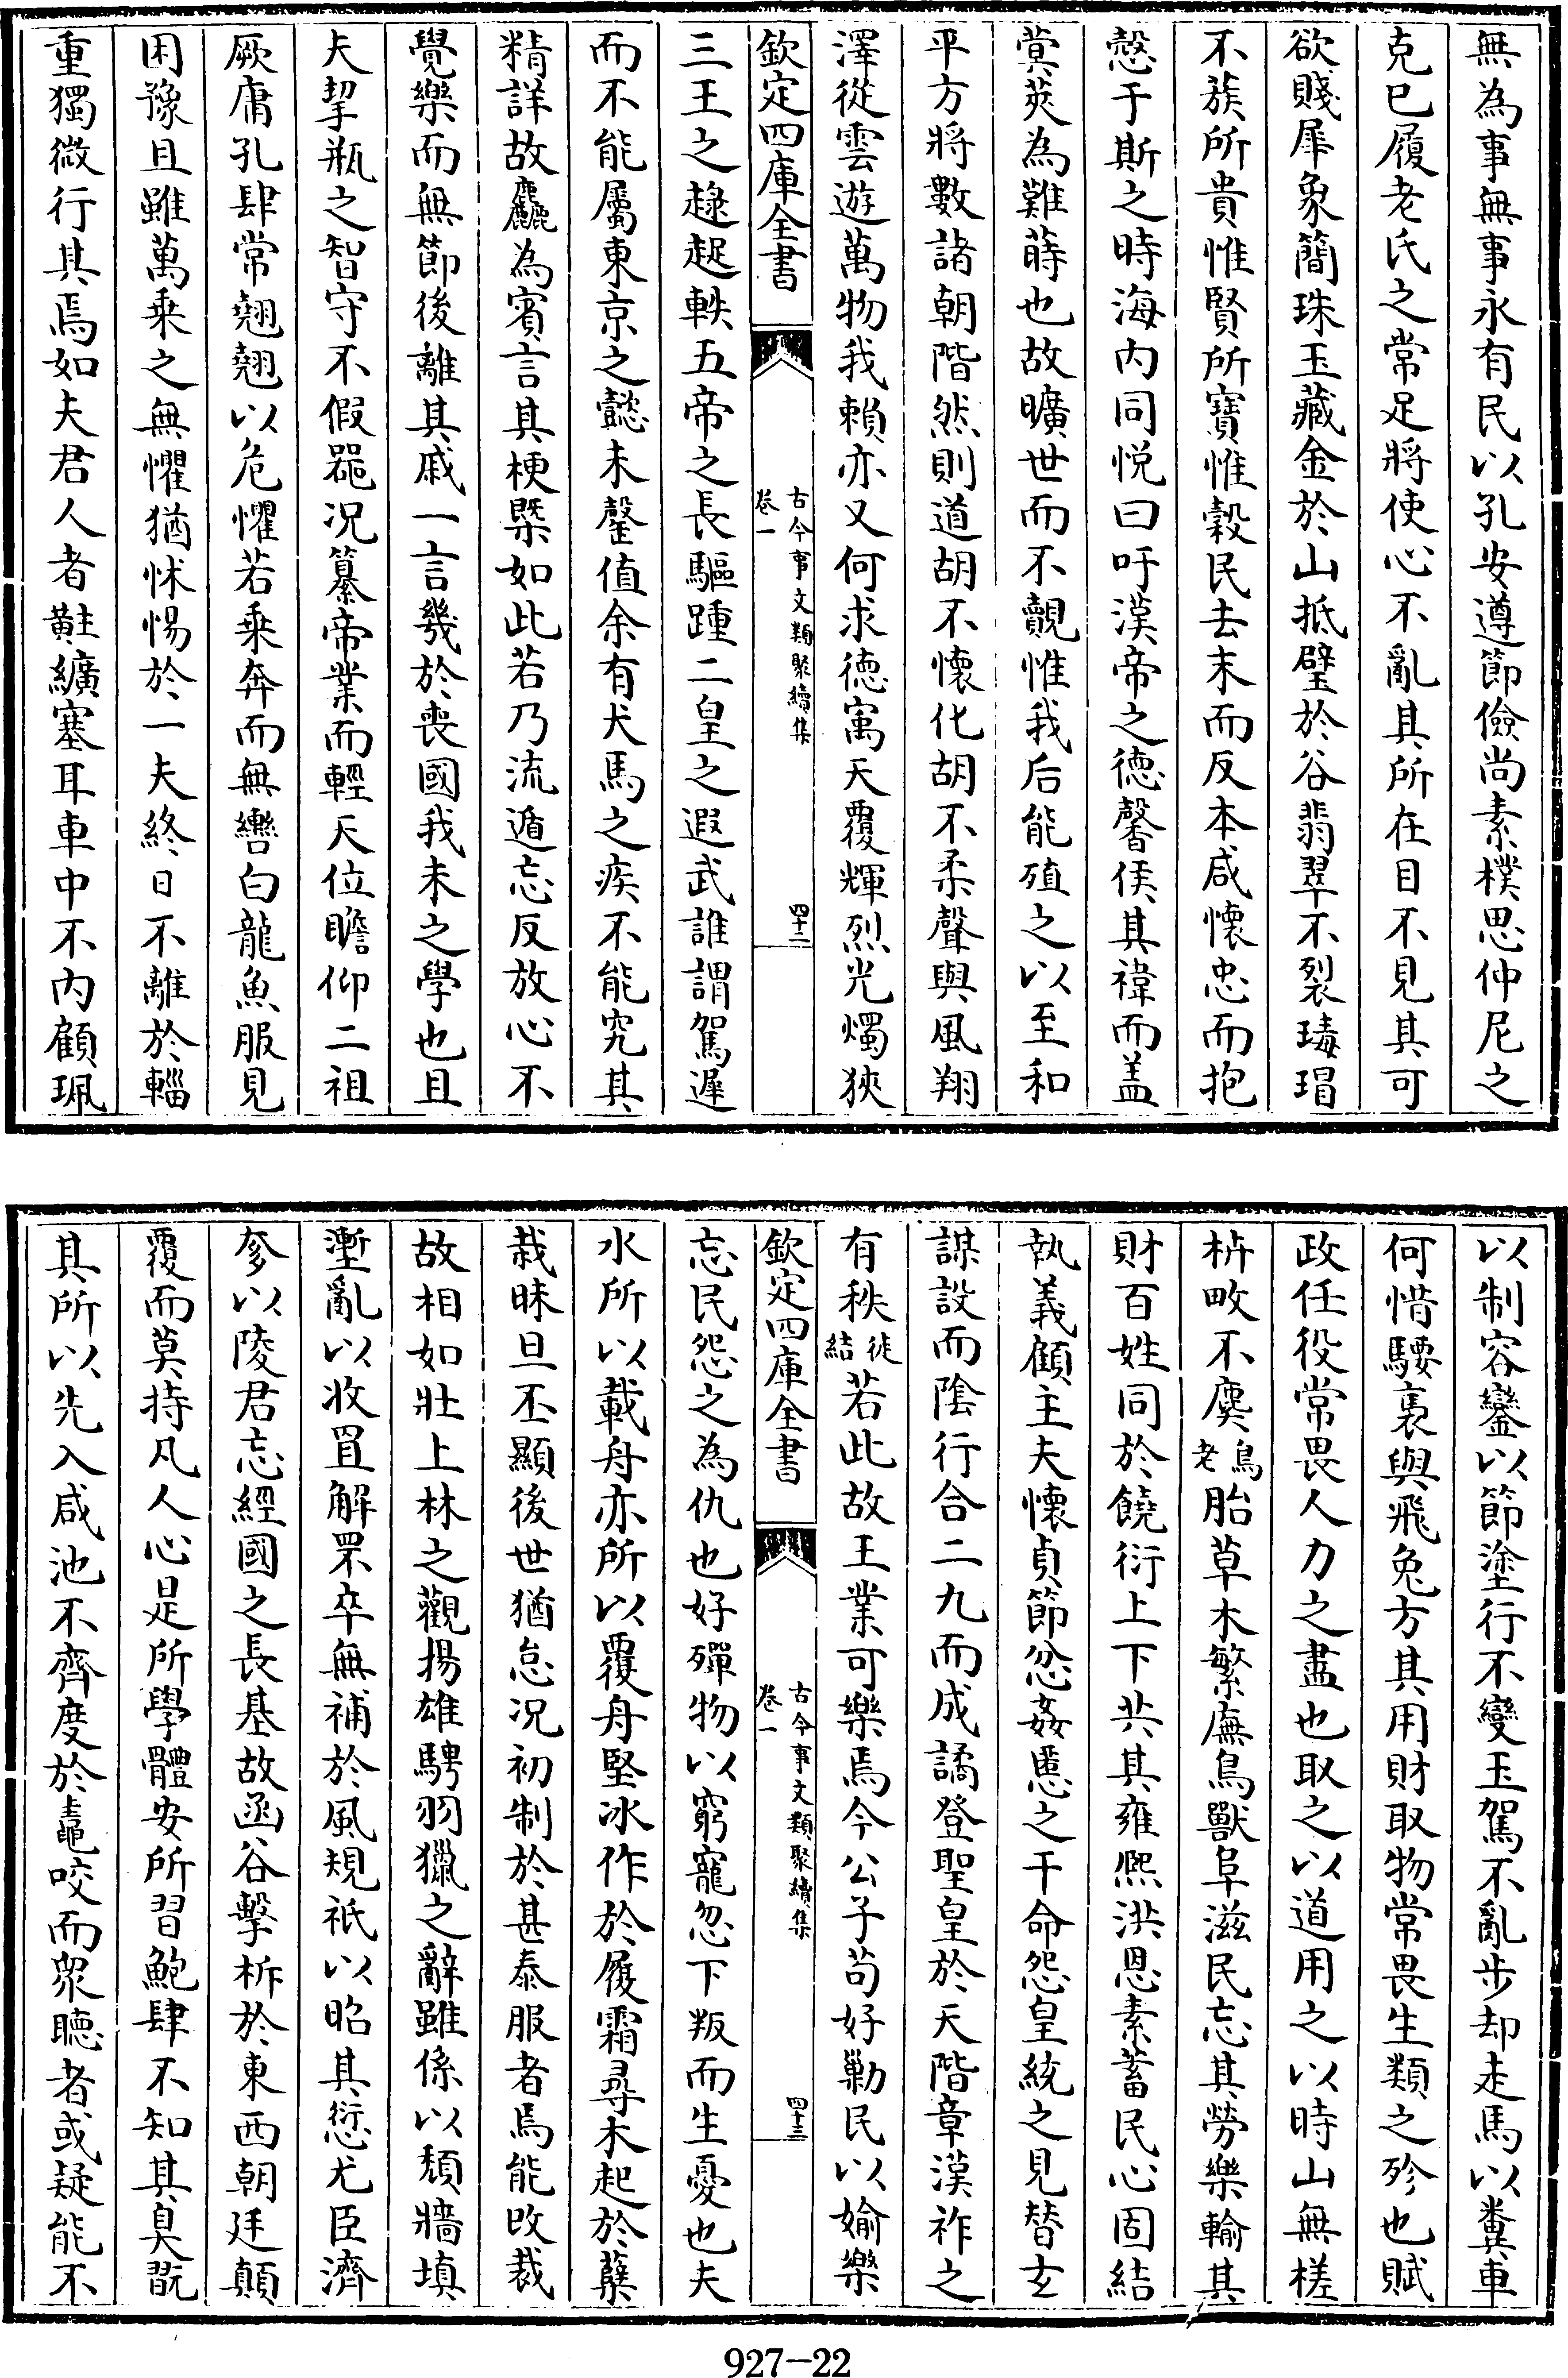 無為事無事永有民以孔安遵節儉尚素樸思仲尼之
克已履老氏之常足將使心不亂其所在目不見其可
欲賤犀象簡珠玉藏金於山抵璧於谷翡翠不裂瑇瑁
不蔟所貴惟賢所寶惟榖民去末而反本咸懷忠而抱
慤于斯之時海内同悦曰吁漢帝之德馨侯其禕而盖
蓂莢為難蒔也故曠世而不覿惟我后能殖之以至和
平方將數諸朝階然則道胡不懷化胡不柔聲與風翔
澤從雲遊萬物我賴亦又何求德寓天覆輝烈光燭狹
欽定四庫全書
古今事文類聚續集
卷一
四十二
三王之趢趗軼五帝之長驅踵二皇之遐武誰謂駕遲
而不能屬東京之懿未罄值余有犬馬之疾不能究其
精詳故麤為賓言其梗槩如此若乃流遁忘反放心不
覺樂而無節後離其戚一言幾於喪國我未之學也且
夫挈瓶之智守不假噐况纂帝業而輕天位瞻仰二祖
厥庸孔肆常翹翹以危懼若乘奔而無轡白龍魚服見
困豫且雖萬乘之無懼猶怵惕於一夫終日不離於輜
重獨微行其焉如夫君人者黈纊塞耳車中不内顧珮
以制容鑾以節塗行不變玉駕不亂步却走馬以糞車
何惜騕褭與飛兔方其用財取物常畏生類之殄也賦
政任役常畏人力之盡也取之以道用之以時山無槎
枿畋不麌
鳥老
胎草木繁廡鳥獸阜滋民忘其勞樂輸其
財百姓同於饒衍上下共其雍熙洪恩素蓄民心固結
執義顧主夫懷貞節忿姦慝之干命怨皇統之見替玄
謀設而陰行合二九而成譎登聖皇於天階章漢祚之
有秩
徒結
若此故王業可樂焉今公子苟好勦民以媮樂
欽定四庫全書
古今事文類聚續集
卷一
四十三
忘民怨之為仇也好殫物以窮寵忽下叛而生憂也夫
水所以載舟亦所以覆舟堅冰作於履霜尋木起於蘖
栽昧旦丕顯後世猶怠况初制於甚泰服者焉能改裁
故相如壯上林之觀揚雄騁羽獵之辭雖係以頹牆填
壍亂以收罝解罘卒無補於風規祇以昭其愆尤臣濟
奓以陵君忘經國之長基故函谷擊柝於東西朝廷顛
覆而莫持凡人心是所學體安所習鮑肆不知其臭翫
其所以先入咸池不齊度於䵷咬而衆聽者或疑能不
927-22